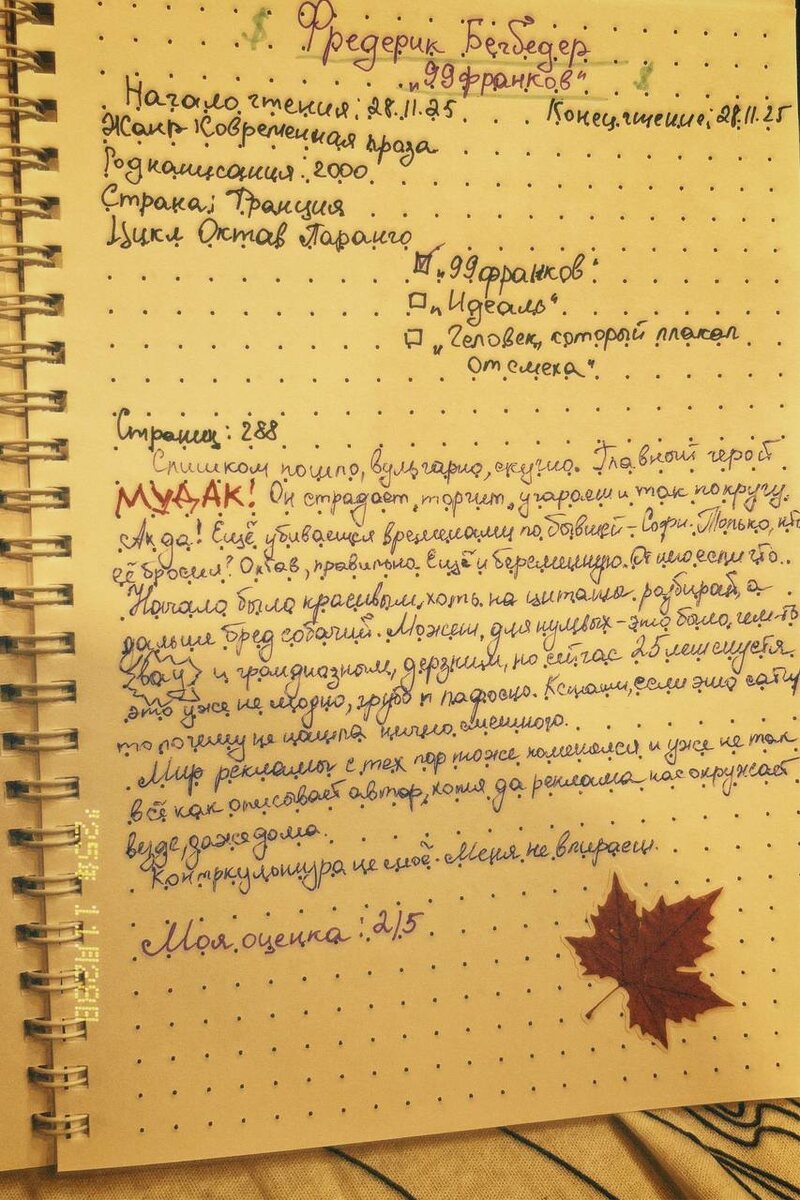 $ Фредерик Бегбедер
„99 франков“ $
Начало чтения: 28.11.25 Конец чтение: 28.11.25
Жанр Современная проза
Год написания: 2000
Страна: Франция
Цикл Октав Паранго
„99 франков“
„Идеаль“
„Человек, который плакал
от смеха“
Страниц: 288
Слишком пошло, вульгарно, скучно. Главный герой
МУДАК! Он страдает, торчит, угарает и так по кругу.
Ах да! Ещё убивается временами по бывшей – Софи. Только, кто
её бросил? Октав, правильно. Ещё и беременную. От него если что.
Начало было красивым, хоть на цитаты разбирай, а
дальше бред собачий. Может, для нулевых – это было чем-то
Вау и грандиозным, дерзким, но сейчас 25 лет спустя
это уже не модно, грубо и пафосно. Кстати, если это сатира
то почему не нашла ничего смешного.
Мир рекламы с тех пор тоже поменялся и уже не так
всё как описывает автор, хотя да реклама нас окружает
везде, даже дома.
Контркультура не моё. Меня не впирает.
Моя оценка: 2/5